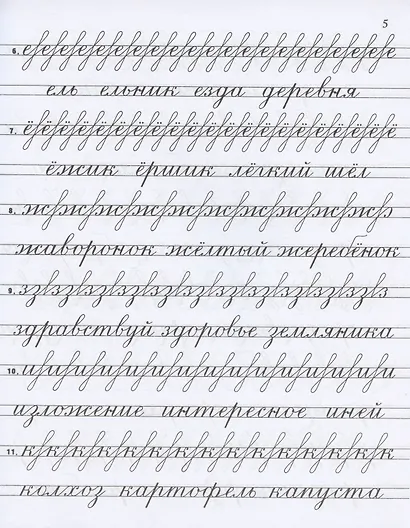 5
6.
ель ельник езда деревня
7.
ёжик ёршик лёгкий шёл
8.
жаворонок жёлтый жеребёнок
9.
здравствуй здоровье земляника
10.
изложение интересное иней
11.
колхоз картофель капуста